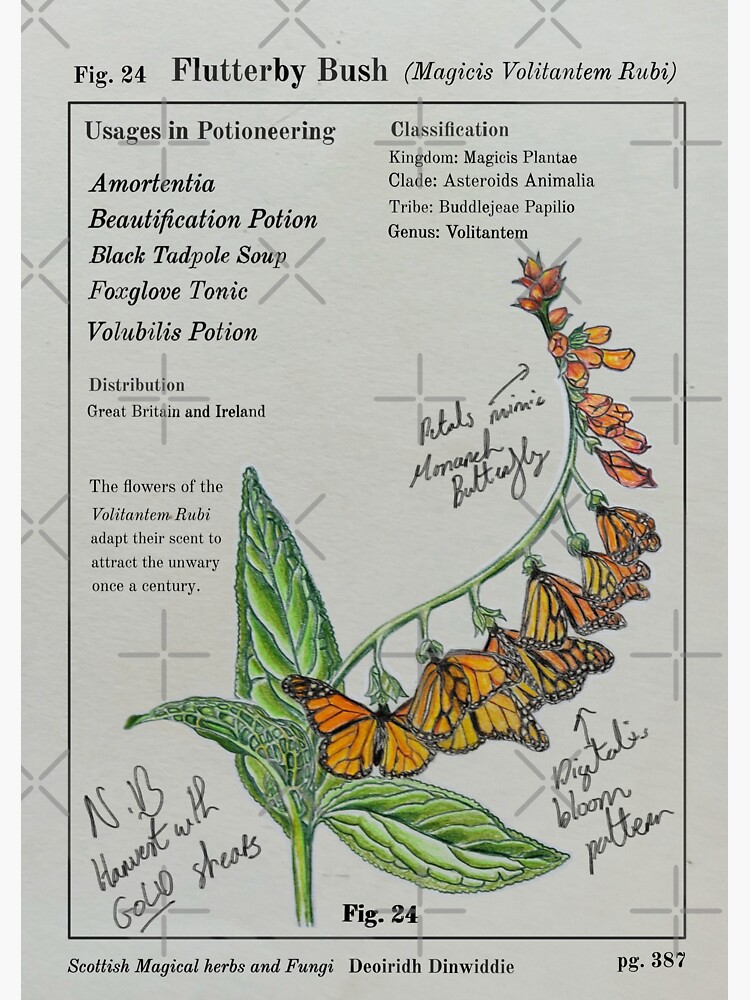 Fig. 24 Flutterby Bush (Magicis Volitantem Rubi)
Usages in Potioneering
Amortentia
Beautification Potion
Black Tadpole Soup
Foxglove Tonic
Volubilis Potion
Classification
Kingdom: Magicis Plantae
Clade: Asteroids Animalia
Tribe: Buddlejeae Papilio
Genus: Volitantem
Distribution
Great Britain and Ireland
Petals mimic
Monarch
Butterfly
The flowers of the
Volitantem Rubi
adapt their scent to
attract the unwary
once a century.
Digitalis
bloom
pattern
N.B
Harvest with
GOLD shears
Fig. 24
Scottish Magical herbs and Fungi Deoiridh Dinwiddie
pg. 387